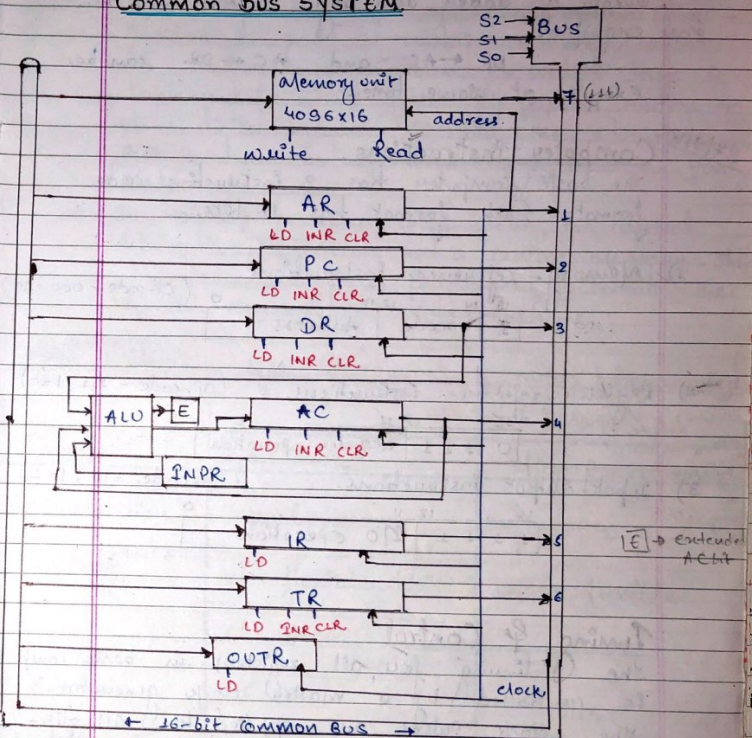 Common Bus System
S2
S1
S0
BUS
Memory unit
4096x16
7 (111)
address
Write Read
AR
1
LD INR CLR
PC
2
LD INR CLR
DR
3
LD INR CLR
ALU
E
AC
4
LD INR CLR
INPR
IR
5
E → extended
AC bit
LD
TR
6
LD INR CLR
OUTR
LD
clock
← 16-bit Common Bus →